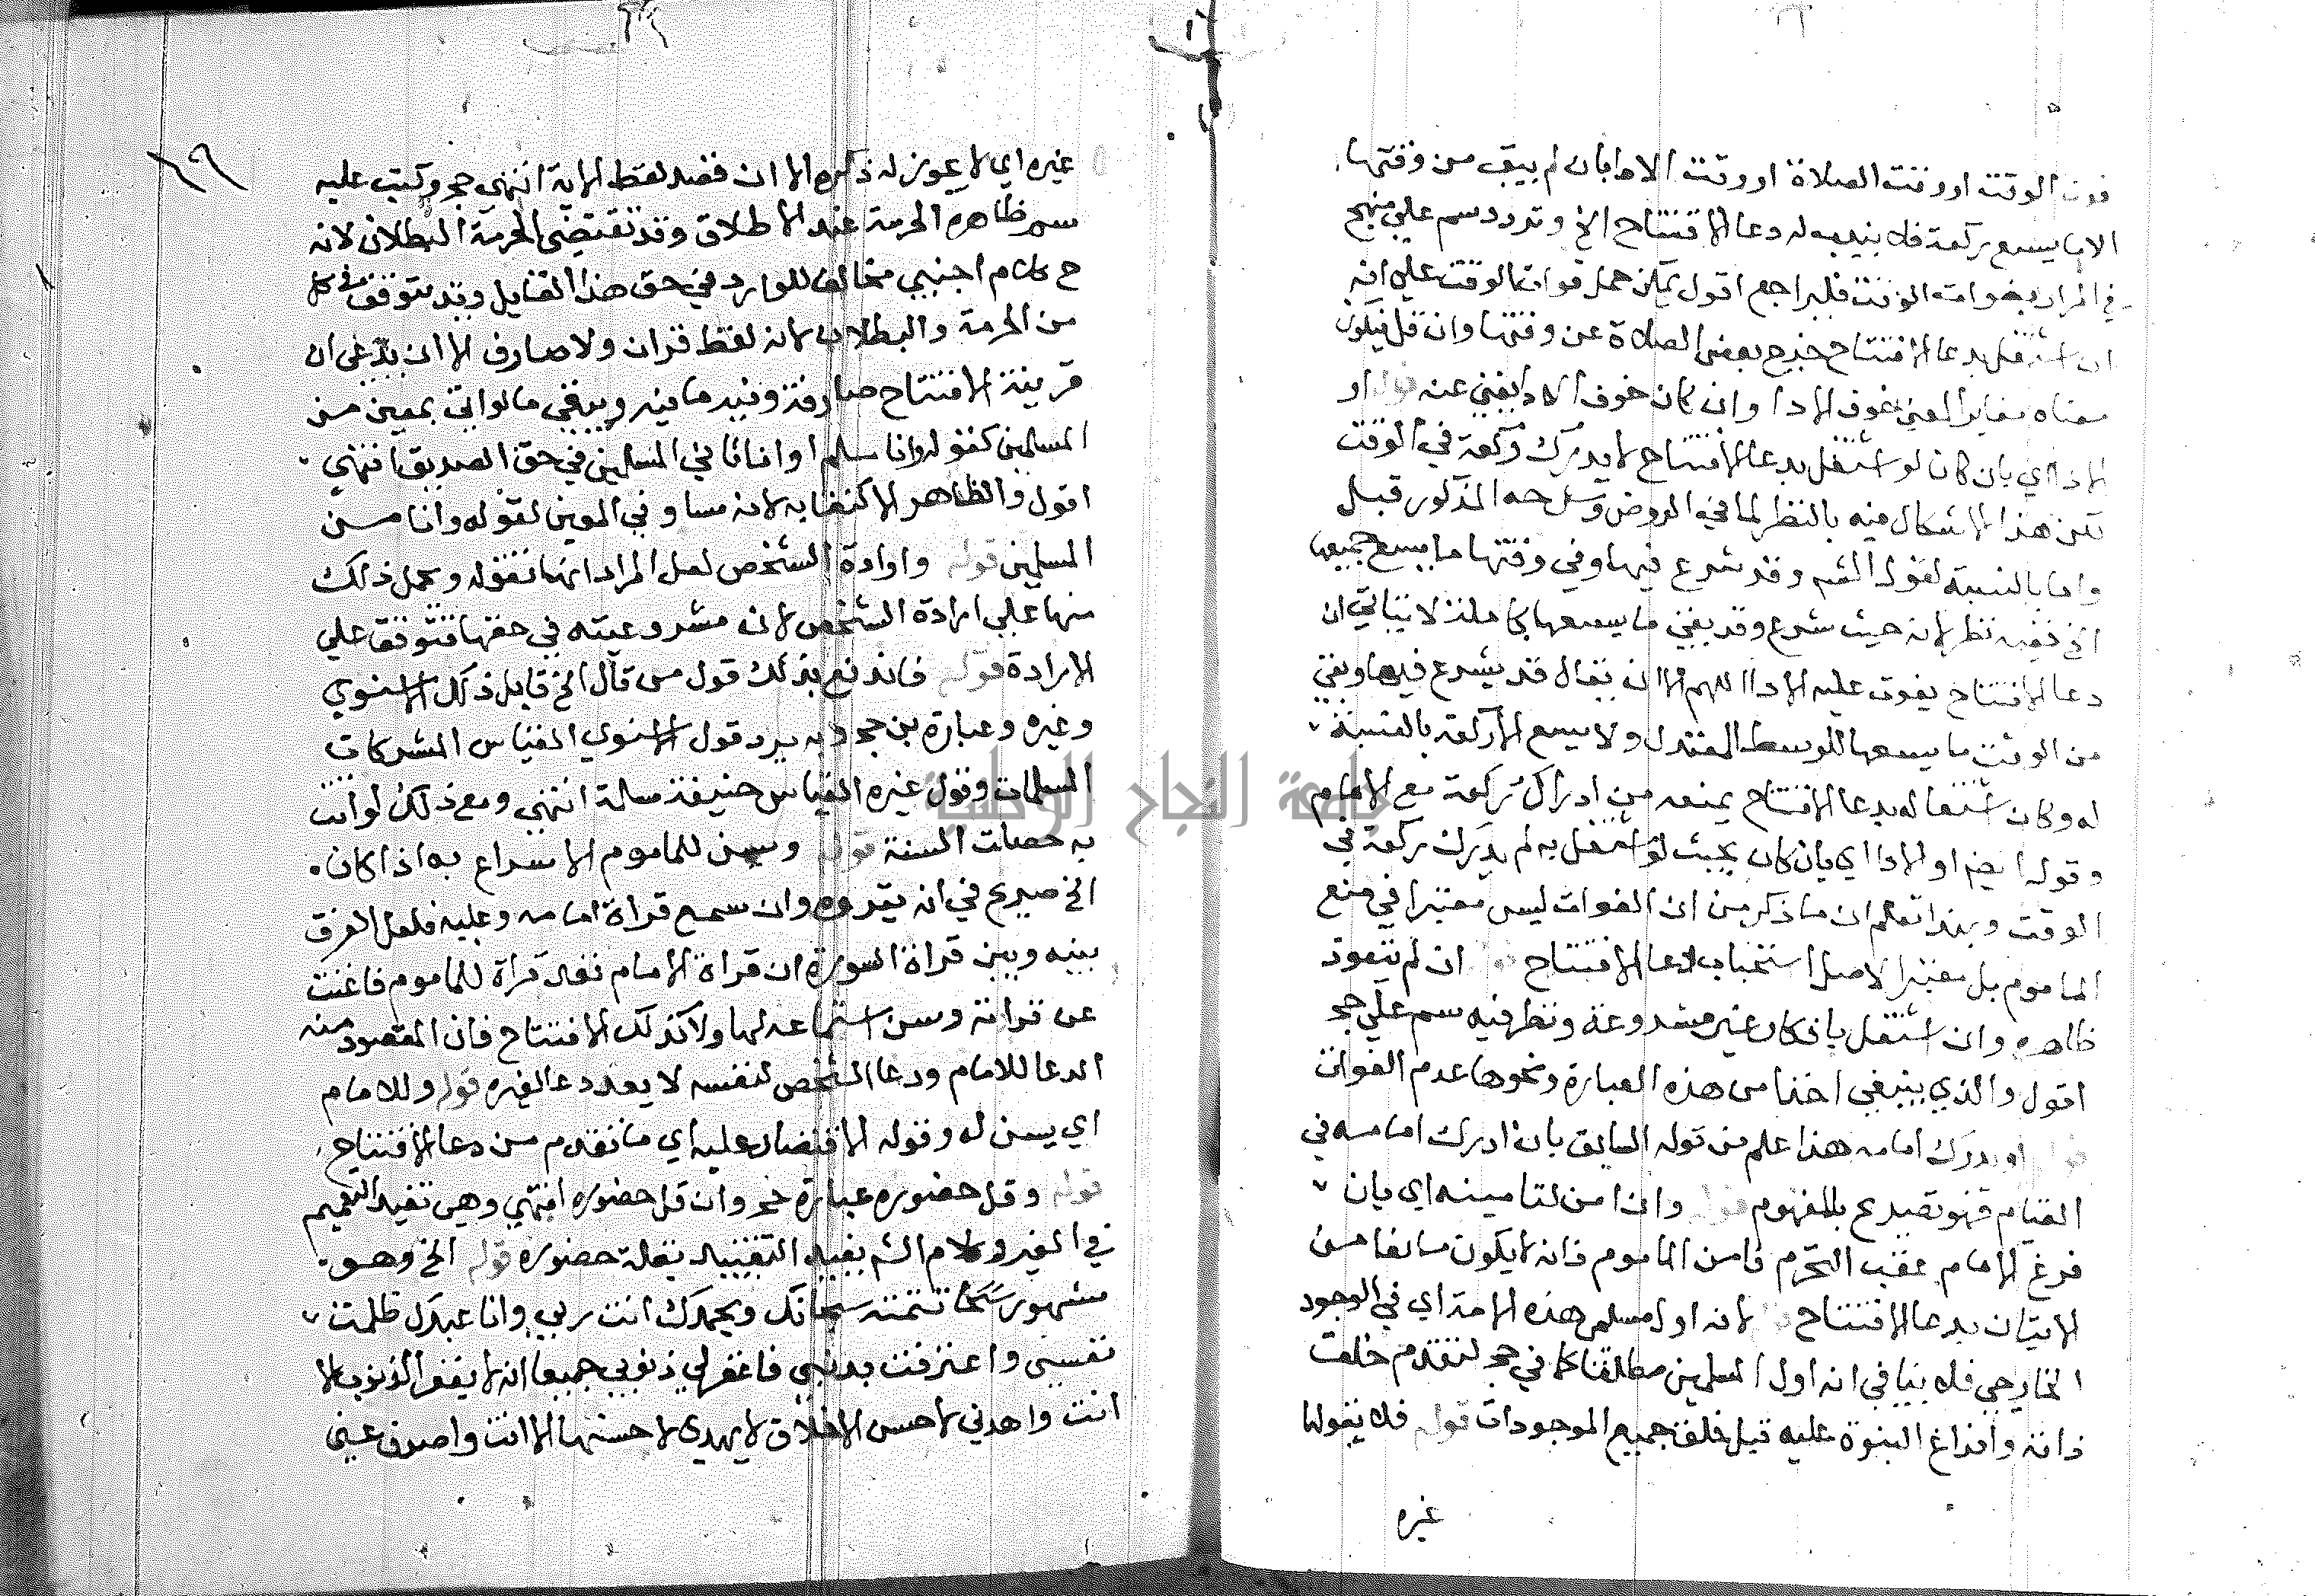 فوت الوقت او وقت الصلاة او وقت الاداء بان لم يبق من وقتها
الا ما يسع ركعة فلا يندب له دعا الافتتاح الخ وتردد سم علي منهج
في المراد بفوات الوقت فليراجع اقول يمكن حمل فوات الوقت علي انه
ان اشتغل بدعا الافتتاح خرج بعض الصلاة عن وقتها وان قل فيكون
معناه مغايرا لمعني خوف الادا وان كان خوف الادا يغني عنه او
الادا اي بان كان لو اشتغل بدعا الافتتاح لا يدرك ركعة في الوقت
لكن هذا الاشكال فيه بالنظر لما في الروض وشرحه المذكور قبل
واما بالنسبة لقول الشم وقد شرع فيها وفي وقتها ما يسع جميعها
الخ ففيه نظر لانه حيث شرع وقد بقي ما يسعها كاملة لا يتاتي ان
دعا الافتتاح يفوت عليه الادا اللهم الا ان يقال قد يشرع فيها وبقي
من الوقت ما يسعها للوسط المعتدل ولا يسع الا ركعة بالنسبة
له وكان اشتغاله بدعا الافتتاح يمنعه من ادراك ركعة مع الامام
وقوله ايضم او الادا اي بان كان بحيث لو اشتغل به لم يدرك ركعة في
الوقت وبهذا تعلم ان ما ذكر من ان الفوات ليس معتبرا في منع
الماموم بل معتبرا لاصل استحباب دعا الافتتاح ان لم يتعوذ
ظاهره وان اشتغل بان كان غير مشروعة ونظر فيه سم علي حج
اقول والذي ينبغي اخذا من هذه العبارة ونحوها عدم الفوات
او يدرك امامه هذا علم من قوله السابق بان ادرك امامه في
القيام فهو تصريح بالمفهوم قوله وان امن لتامينه اي بان
فرغ الامام عقب التحرم فامن الماموم فانه لا يكون مانعا من
الاتيان بدعا الافتتاح لانه اول مسلمي هذه الامة اي في الوجود
الخارجي فلا ينافي انه اول المسلمين مطلقا كما في حج لتقدم خلق
ذاته وافراغ النبوة عليه قبل خلق جميع الموجودات قوله فلا يقولها
غيره
١٩
غيره اي لا يجوز له ذكره الا ان قصد لفظ الاية انتهي حج وكتب عليه
سم ظاهره الحرمة عند الاطلاق وقد تقتضي الحرمة البطلان لانه
ح كلام اجنبي مخالف للوارد في حق هذا القايل وقد يتوقف في كل
من الحرمة والبطلان لانه لفظ قران ولا صارف الا ان يدعي ان
قرينة الافتتاح صارفة وفيه ما فيه ويبقي ما لو اتي بمعين من
المسلمين كقوله وانا مسلم او انا ثاني المسلمين في حق الصديق انتهي
اقول والظاهر الاكتفا به لانه مساو في المعين لقوله وانا من
المسلمين قوله وارادة الشخص لعل المراد انها تقوله ويحمل ذلك
منها علي ارادة الشخص لان مشروعيته في حقها تتوقف علي
الارادة قوله فاندفع بذلك قول من قال الخ قايل ذلك الاسنوي
وغيره وعبارة بن حج وبه يرد قول الاسنوي القياس المشركات
المسلمات وقول غيره القياس حنيفة مسلمة انتهي ومع ذلك لو اتت
به حصلت السنة قوله ويسن للماموم الاسراع به اذا كان
الخ صريح في انه يقروه وان سمع قراة امامه وعليه فلعل الفرق
بينه وبين قراة السورة ان قراة الامام تعد قراة للماموم فاغنت
عن قراته وسن استماعه لها ولا كذلك الافتتاح فان المقصود منه
الدعا للامام ودعا الشخص لنفسه لا يعد دعا لغيره قوله وللامام
اي يسن له وقوله الاقتصار عليه اي ما تقدم من دعا الافتتاح
قوله وقل حضوره عبارة حج وان قل حضوره انتهي وهي تفيد التعميم
في الغير وكلام الشم يفيد التقييد بقلة حضوره قوله الخ وهو
مشهور تتمته سبحانك وبحمدك انت ربي وانا عبدك ظلمت
نفسي واعترفت بذنبي فاغفر لي ذنوبي جميعا انه لا يغفر الذنوب الا
انت واهدني لاحسن الاخلاق لا يهدي لاحسنها الا انت واصرف عني
جامعة النجاح الوطنية